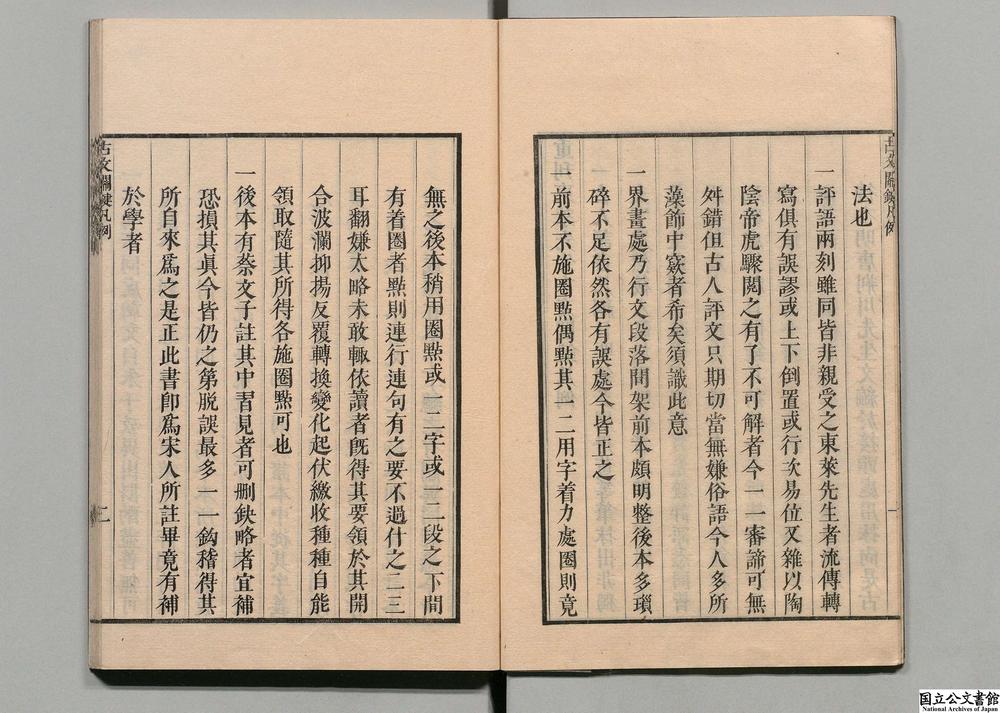 古文關鍵凡例
法也
一評語兩刻雖同皆非親受之東萊先生者流傳轉
寫俱有誤謬或上下倒置或行次易位又雜以陶
陰帝虎驟閱之有了不可解者今一一審諦可無
舛錯但古人評文只期切當無嫌俗語今人多所
藻飾中窽者希矣須識此意
一界畫處乃行文段落間架前本頗明整後本多瑣
碎不足依然各有誤處今皆正之
一前本不施圈㸃偶㸃其一二用字着力處圈則竟
一
無之後本稍用圈㸃或一二字或一二段之下間
有着圈者㸃則連行連句有之要不過什之二三
耳翻嫌太略未敢輙依讀者旣得其要領於其開
合波瀾抑揚反覆轉換變化起伏繳收種種自能
領取隨其所得各施圈㸃可也
一後本有蔡文子註其中習見者可刪缺略者宜補
恐損其眞今皆仍之第脫誤最多一一鈎稽得其
所自來爲之是正此書卽爲宋人所註畢竟有補
於學者
古文關鍵凡例
二
国立公文書館
National Archives of Japan